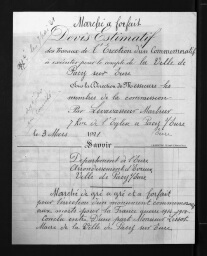 Marché à forfait
Devis Estimatif
des Travaux de l'Erection d'un Commemoratif
à exécuter pour le compte de la Ville de
Pacy sur Eure
Sous la Direction de Messieurs les
membres de la commission
Par Levavasseur Marbrier
7 Rue de l'Eglise à Pacy s/Eure
Le 3 Mars 1921
Savoir
Département de l'Eure
Arrondissement d'Evreux
Ville de Pacy s/Eure
Marché de gré à gré et à forfait
pour l'erection d'un monument commemoratif
aux morts pour la France guerre 1914-1918.
Conclu entre D'une part Monsieur
Maire de la Ville de Pacy sur Eure